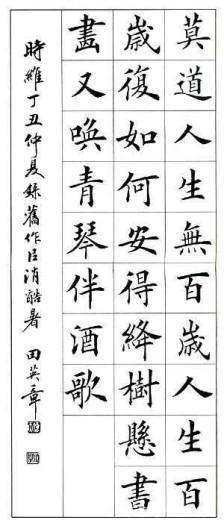 莫道人生無百歲人生百
歲復如何安得絳樹懸書
畫又喚青琴伴酒歌
時維丁丑仲夏錄舊作以消酷暑 田英章